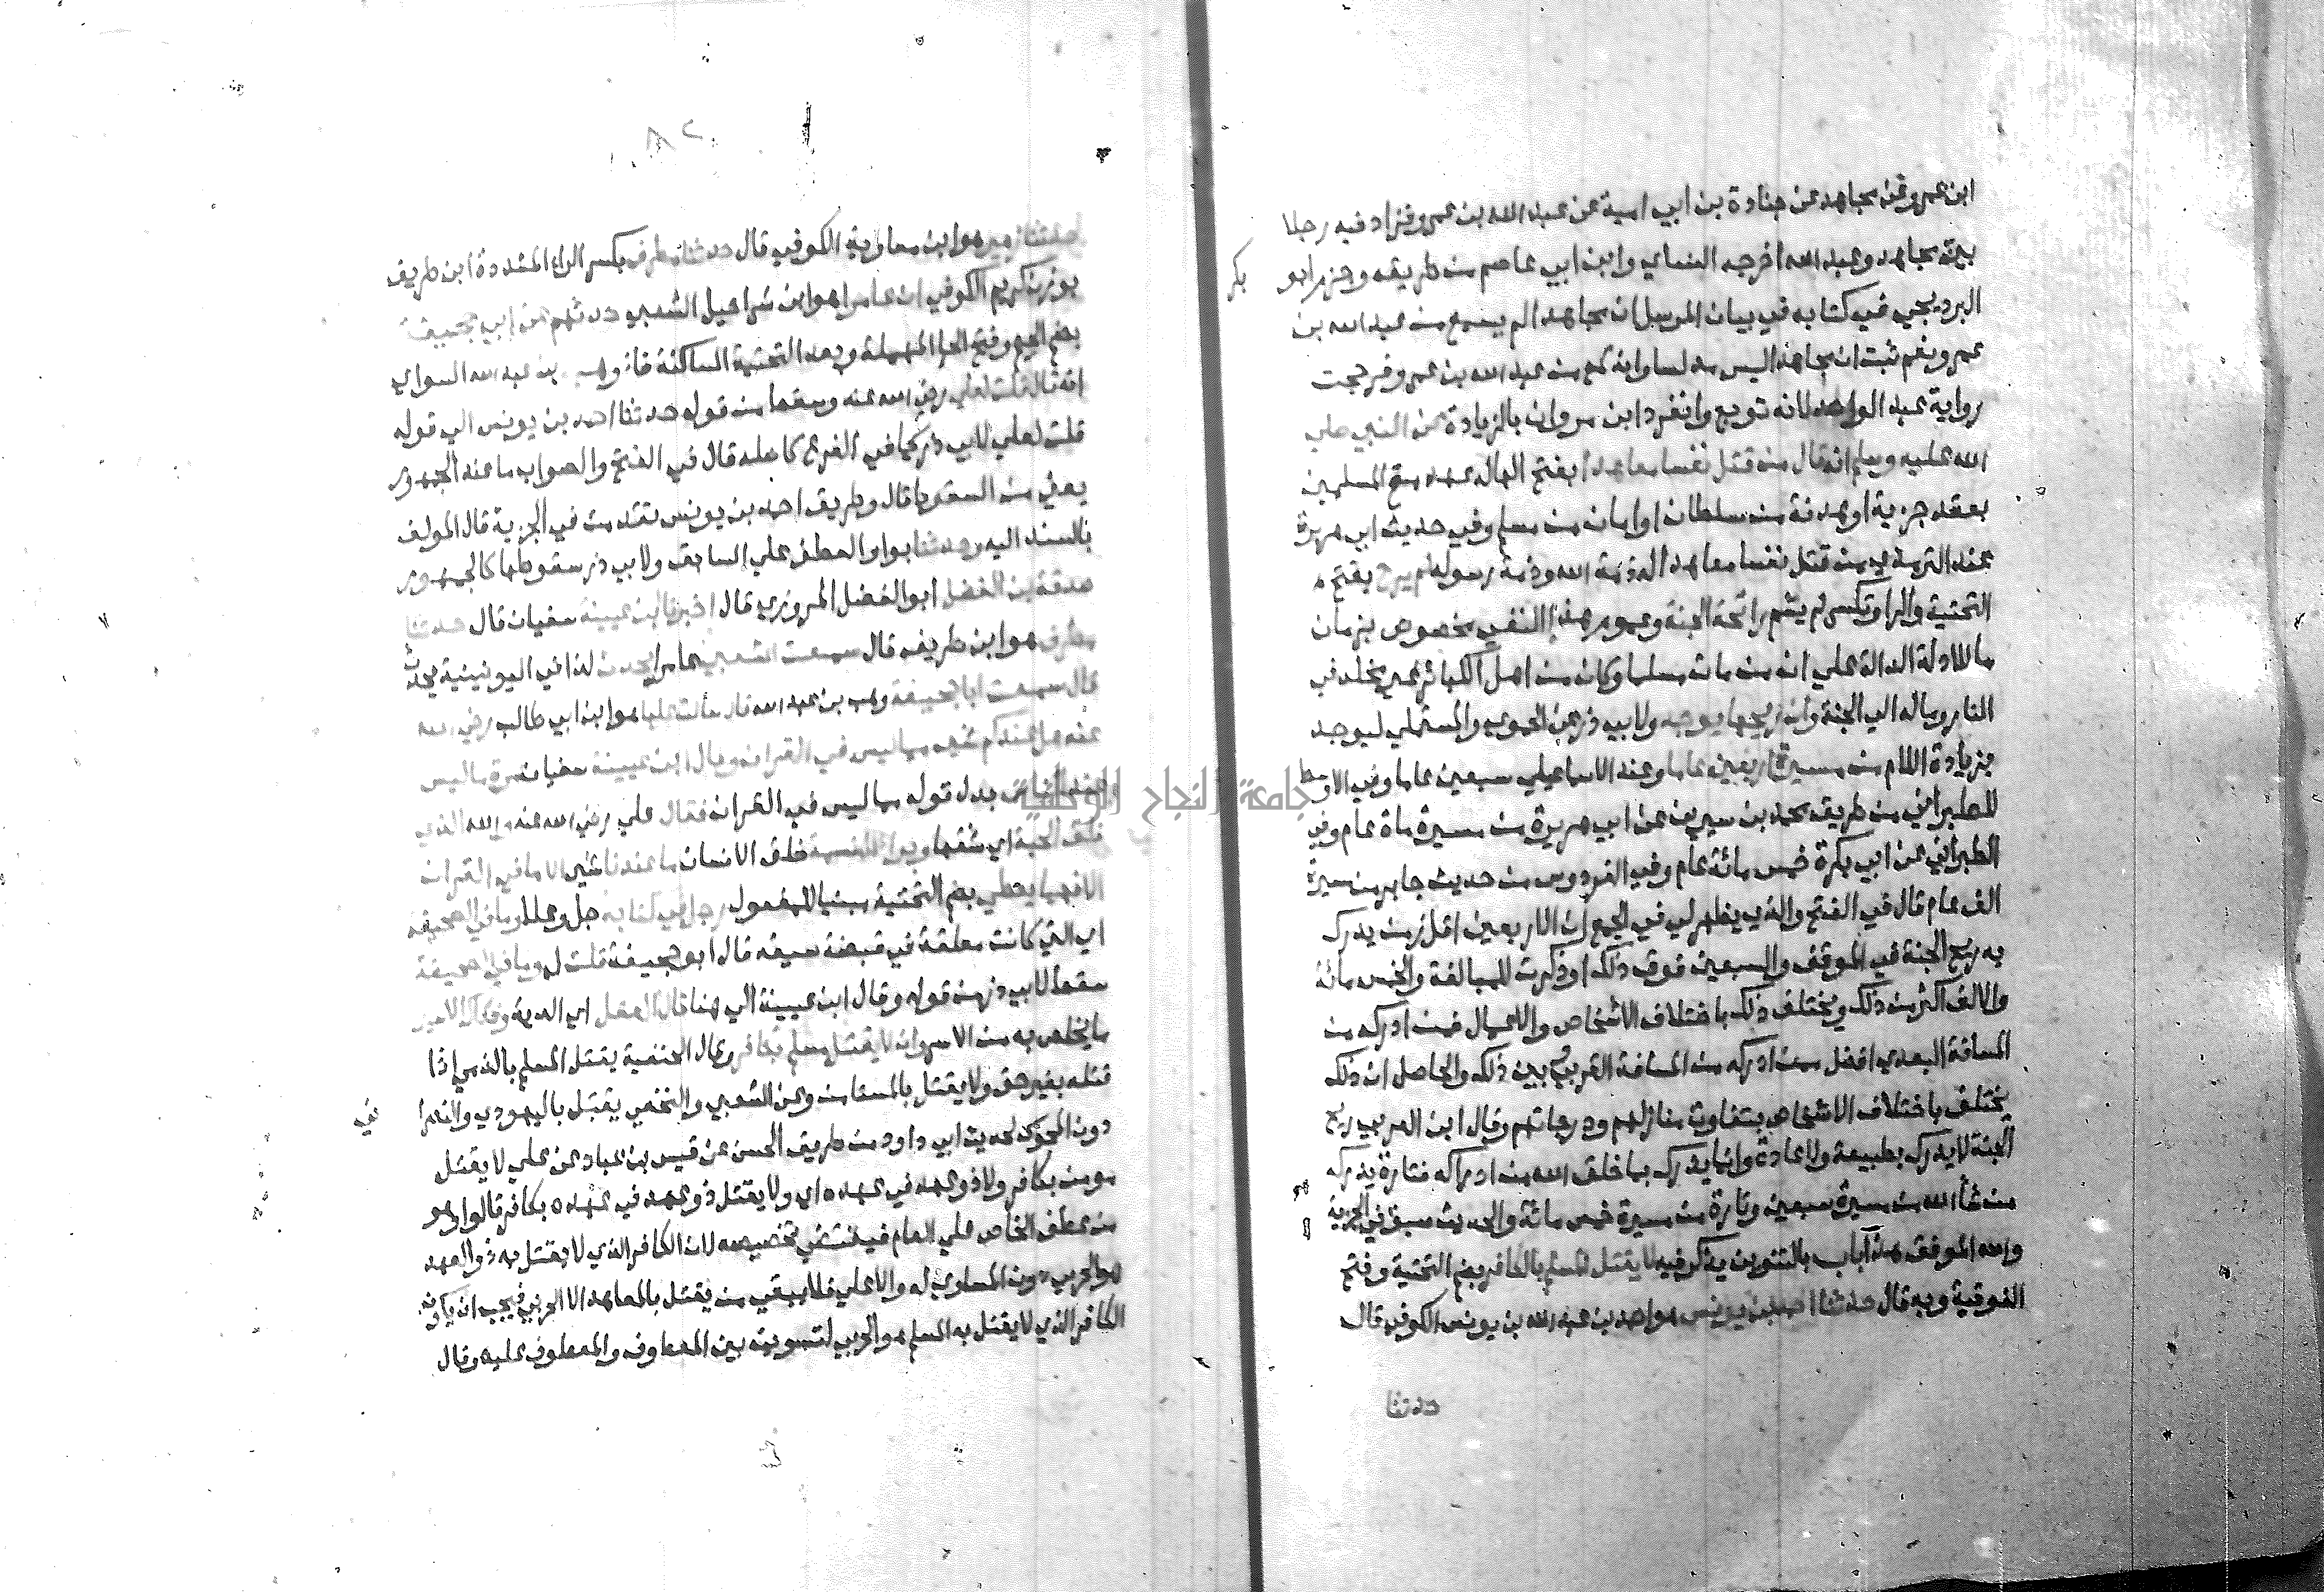 ابن عمرو عن مجاهد عن جنادة بن ابي امية عن عبد الله بن عمرو فزاد فيه رجلا
بين مجاهد وعبد الله اخرجه النساي وابن ابي عاصم من طريقه وجزم ابو
بكر
البرديجي في كتابه في بيان المرسل ان مجاهدا لم يسمع من عبد الله بن
عمرو نعم ثبت ان مجاهدا ليس مدلسا وانه سمع من عبد الله بن عمرو فرجحت
رواية عبد الواحد لانه توبع وانفرد ابن مروان بالزيادة عن النبي صلي
الله عليه وسلم انه قال من قتل نفسا معاهدا بفتح الهاء عهد مع المسلمين
بعقد جزية او هدنة من سلطان او امان من مسلم وفي حديث ابي هريرة
عند الترمذي من قتل نفسا معاهدا له ذمة الله وذمة رسوله لم يرح بفتح
التحتية والراو تكسر لم يشم رائحة الجنة وعموم هذا النفي مخصوص بزمان
ما للادلة الدالة علي ان من مات مسلما وكان من اهل الكبائر غير مخلد في
النار وماله الي الجنة وان ريحها يوجد ولابي ذر عن الحموي والمستملي ليوجد
بزيادة اللام من مسيرة اربعين عاما وعند الاسماعيلي سبعين عاما وفي الاوسط
للطبراني من طريق محمد بن سيرين عن ابي هريرة من مسيرة ماة عام وفي
الطبراني عن ابي بكرة خمس مائة عام وفي الفردوس من حديث جابر من مسيرة
الف عام قال في الفتح والذي يظهر لي في الجمع ان الاربعين اقل زمن يدرك
به ريح الجنة في الموقف والسبعين فوق ذلك او ذكرت للمبالغة والخمس مائة
والالف اكثر من ذلك ويختلف ذلك باختلاف الاشخاص والاعمال فمن ادركه من
المسافة البعدي افضل ممن ادركه من المسافة القربي وبين ذلك والحاصل ان ذلك
يختلف باختلاف الاشخاص بتفاوت منازلهم ودرجاتهم وقال ابن العربي ريح
الجنة لا يدرك بطبيعة ولا عادة وانما يدرك بما خلق الله من ادراكه فتارة يدركه
من شا الله من مسيرة سبعين وتارة من مسيرة خمس مائة والحديث سبق في الجزية
والله الموفق هذا باب بالتنوين يذكر فيه لا يقتل المسلم بالكافر بضم التحتية وفتح
الفوقية وبه قال حدثنا احمد بن يونس هو احمد بن عبد الله بن يونس الكوفي قال
حدثنا
٨٢
حدثنا زهير هو ابن معاوية الكوفي قال حدثنا مطرف بكسر الراء المشددة ابن طريف
بوزن كريم الكوفي ان عامرا هو ابن شراحيل الشعبي حدثهم عن ابي جحيفة
بضم الجيم وفتح الحا المهملة وبعد التحتية الساكنة فا وهب بن عبد الله السواي
انه قال قلت لعلي رضي الله عنه وسقط من قوله حدثنا احمد بن يونس الي قوله
قلت لعلي لابي ذر كما في الفرع كاصله قال في الفتح والصواب ما عند الجمهور
يعني من السقوط قال وطريق احمد بن يونس تقدمت في الجزية قال المولف
بالسند اليه وحدثنا بواو العطف علي السابق ولابي ذر سقوطها كالجمهور
صدقة بن الفضل ابو الفضل المروزي قال اخبرنا ابن عيينة سفيان قال حدثنا
مطرف هو ابن طريف قال سمعت الشعبي عامرا يحدث كذا في اليونينية يحدث
قال سمعت ابا جحيفة وهب بن عبد الله قال سالت عليا هو ابن ابي طالب رضي الله
عنه هل عندكم شي مما ليس في القران وقال ابن عيينة سفيان مرة ما ليس
عند الناس بدل قوله مما ليس في القران فقال علي رضي الله عنه والله الذي
فلق الحبة اي شقها وبرا النسمة خلق الانسان ما عندنا شي الا ما في القران
الا فهما يعطي بضم التحتية مبنيا للمفعول رجل في كتابه جل وعلا وما في الصحيفة
اي التي كانت معلقة في قبضة سيفه قال ابو جحيفة قلت له وما في الصحيفة
سقط لابي ذر من قوله وقال ابن عيينة الي هنا قال العقل اي الدية وفكاك الاسير
ما يخلص به من الاسر وان لا يقتل مسلم بكافر وقال الحنفية يقتل المسلم بالذمي اذا
قتله بغير حق ولا يقتل بالمستامن وعن الشعبي والنخعي يقتل باليهودي والنصرا
ني
دون المجوسي لحديث ابي داود من طريق الحسن عن قيس بن عباد عن علي لا يقتل
مومن بكافر ولا ذو عهد في عهده اي ولا يقتل ذو عهد في عهده بكافر قالوا وهو
من عطف الخاص علي العام فيقتضي تخصيصه لان الكافر الذي لا يقتل به ذو العهد
هو الحربي دون المساوي له والاعلي فلا يبقي من يقتل بالمعاهد الا الحربي فيجب ان يكون
الكافر الذي لا يقتل به المسلم هو الحربي لتسويته بين المعطوف والمعطوف عليه وقال
جامعة النجاح الوطنية